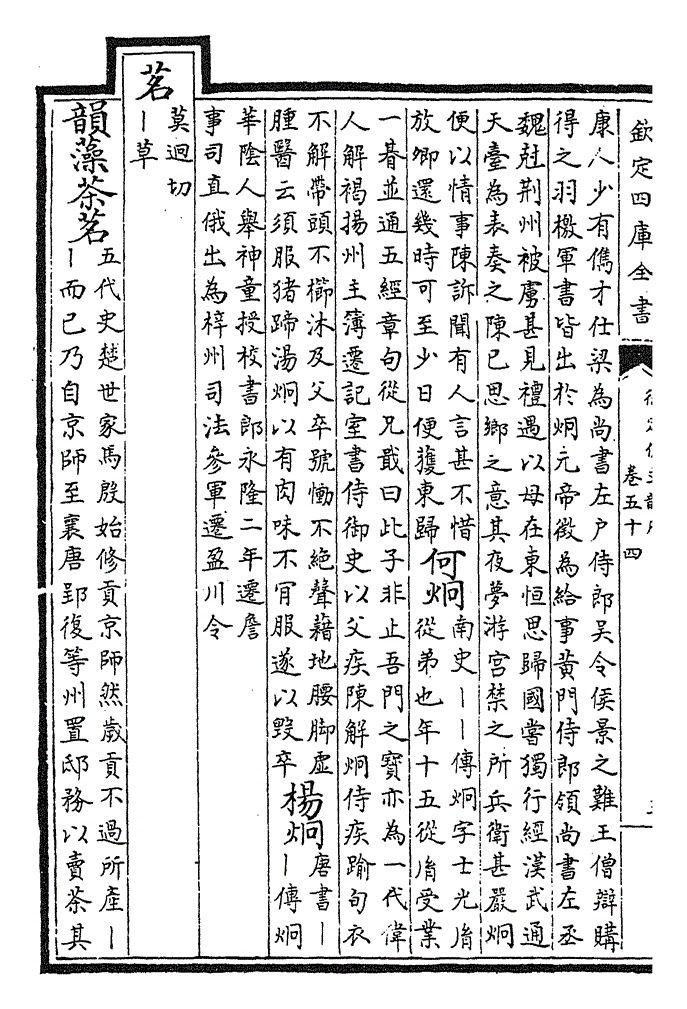 欽定四庫全書
卷五十四
康人少有儁才仕梁為尚書左户侍郎吴令侯景之難王僧辯購
得之羽檄軍書皆出於炯元帝徵為給事黄門侍郎領尚書左丞
魏尅荆州被虜甚見禮遇以母在東恒思歸國嘗獨行經漢武通
天臺為表奏之陳已思鄉之意其夜夢游宫禁之所兵衛甚嚴炯
便以情事陳訴聞有人言甚不惜
放卿還幾時可至少日便獲東歸
何炯
南史丨丨傳炯字士光𦙍
從弟也年十五從𦙍受業
一朞並通五經章句從兄戢曰此子非止吾門之寶亦為一代偉
人解褐揚州主簿遷記室書侍御史以父疾陳解炯侍疾踰旬衣
不解帶頭不櫛沐及父卒號慟不絶聲藉地腰脚虚
腫醫云須服猪蹄湯炯以有肉味不肎服遂以毁卒
楊炯
唐書丨
丨傳炯
華陰人舉神童授校書郎永隆二年遷詹
事司直俄出為梓州司法參軍遷盈川令
茗
莫迥切
丨草
韻藻茶茗
五代史楚世家馬殷始修貢京師然歲貢不過所產丨
丨而已乃自京師至襄唐郢復等州置邸務以賣茶其